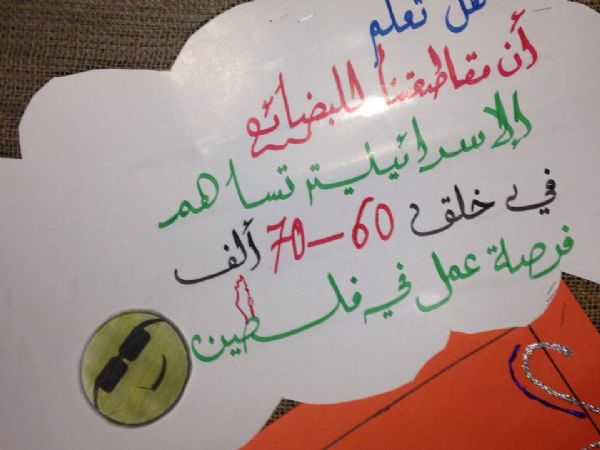 هل تعلم
أن مقاطعتنا للبضائع
الإسرائيلية تساهم
في خلق 60–70 ألف
فرصة عمل في فلسطين